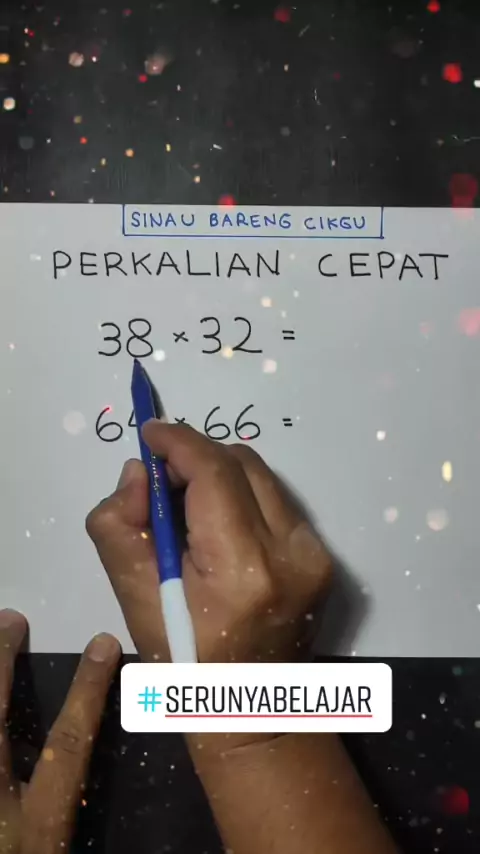 SINAU BARENG CIKGU
PERKALIAN CEPAT
38 × 32 =
64 × 66 =
#SERUNYABELAJAR